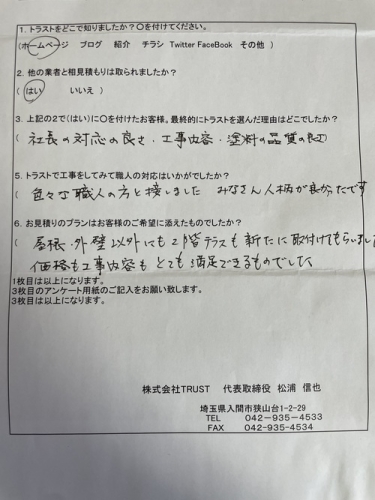 1. トラストをどこで知りましたか？〇を付けてください。
(ホームページ ブログ 紹介 チラシ Twitter FaceBook その他 )
2. 他の業者と相見積もりは取られましたか？
( はい いいえ )
3. 上記の2で(はい)に〇を付けたお客様。最終的にトラストを選んだ理由はどこでしたか？
( 社長の対応の良さ・工事内容・塗料の品質の良さ)
5. トラストで工事をしてみて職人の対応はいかがでしたか？
( 色々な職人の方と接しました みなさん人柄が良かったです
6. お見積りのプランはお客様のご希望に添えたものでしたか？
( 屋根・外壁以外にも2階テラスも新たに取付けてもらいました
価格も工事内容もとても満足できるものでした
1枚目は以上になります。
3枚目のアンケート用紙のご記入をお願い致します。
3枚目は以上になります。
株式会社TRUST 代表取締役 松浦 信也
埼玉県入間市狭山台1-2-29
TEL 042-935-4533
FAX 042-935-4534